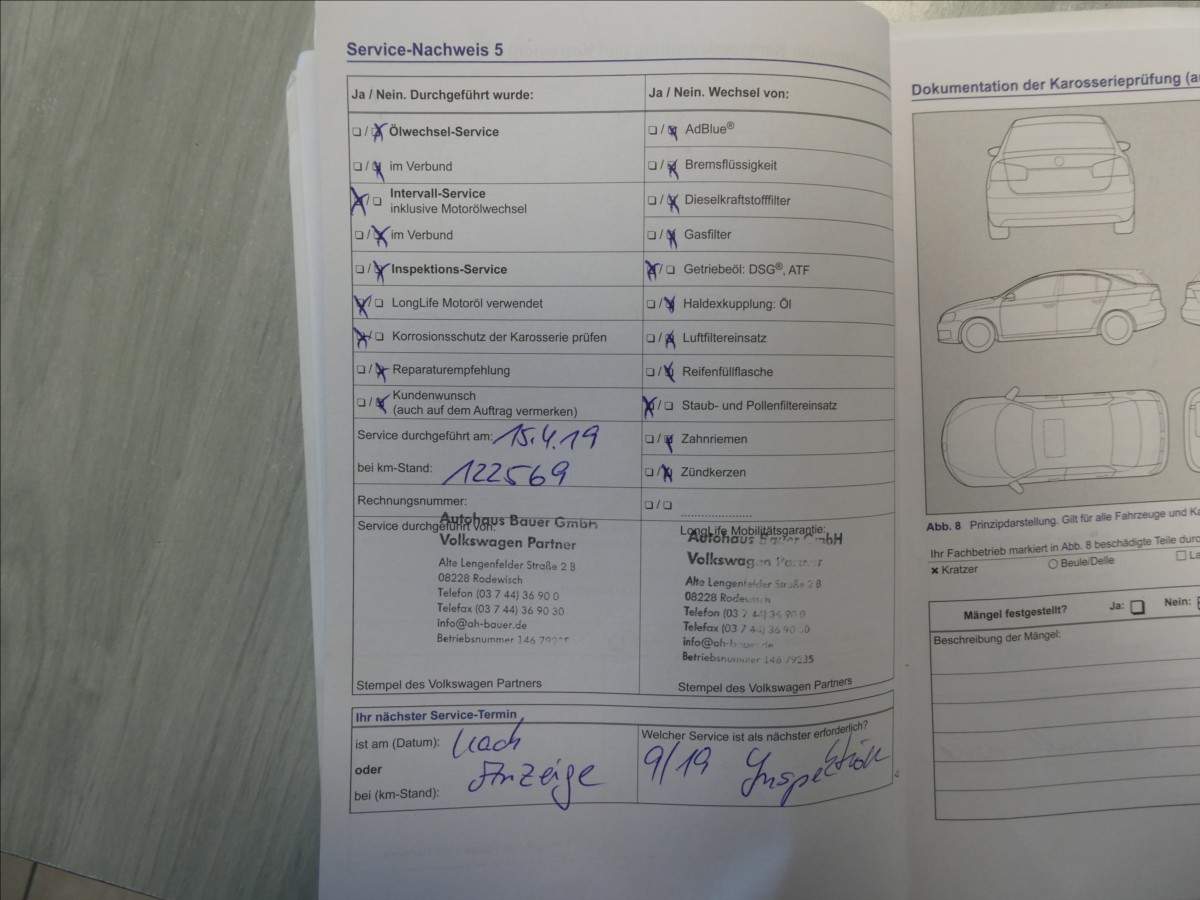 Service-Nachweis 5
Ja / Nein. Durchgeführt wurde:
☐ / ☒ Ölwechsel-Service
☐ / ☒ im Verbund
☒ / ☐ Intervall-Service
inklusive Motorölwechsel
☐ / ☒ im Verbund
☐ / ☒ Inspektions-Service
☒ / ☐ LongLife Motoröl verwendet
☒ / ☐ Korrosionsschutz der Karosserie prüfen
☐ / ☒ Reparaturempfehlung
☐ / ☒ Kundenwunsch
(auch auf dem Auftrag vermerken)
Service durchgeführt am: 15.4.19
bei km-Stand: 122569
Rechnungsnummer:
Service durchgeführt von:
Autohaus Bauer GmbH
Volkswagen Partner
Alte Lengenfelder Straße 2 B
08228 Rodewisch
Telefon (03 7 44) 36 90 0
Telefax (03 7 44) 36 90 30
info@ah-bauer.de
Betriebsnummer 146 79235
Stempel des Volkswagen Partners
Ja / Nein. Wechsel von:
☐ / ☒ AdBlue®
☐ / ☒ Bremsflüssigkeit
☐ / ☒ Dieselkraftstofffilter
☐ / ☒ Gasfilter
☒ / ☐ Getriebeöl: DSG®, ATF
☐ / ☒ Haldexkupplung: Öl
☐ / ☒ Luftfiltereinsatz
☐ / ☒ Reifenfüllflasche
☒ / ☐ Staub- und Pollenfiltereinsatz
☐ / ☒ Zahnriemen
☐ / ☒ Zündkerzen
☐ / ☐
LongLife Mobilitätsgarantie:
Autohaus Bauer GmbH
Volkswagen Partner
Alte Lengenfelder Straße 2 B
08228 Rodewisch
Telefon (03 7 44) 36 90 0
Telefax (03 7 44) 36 90 30
info@ah-bauer.de
Betriebsnummer 146 79235
Stempel des Volkswagen Partners
Ihr nächster Service-Termin
ist am (Datum): Nach
oder Anzeige
bei (km-Stand):
Welcher Service ist als nächster erforderlich?
9/19 Inspektion
Dokumentation der Karosserieprüfung
Abb. 8 Prinzipdarstellung. Gilt für alle Fahrzeuge und
Ihr Fachbetrieb markiert in Abb. 8 beschädigte Teile durc
× Kratzer ○ Beule/Delle ☐ La
Mängel festgestellt? Ja: ☐ Nein:
Beschreibung der Mängel: